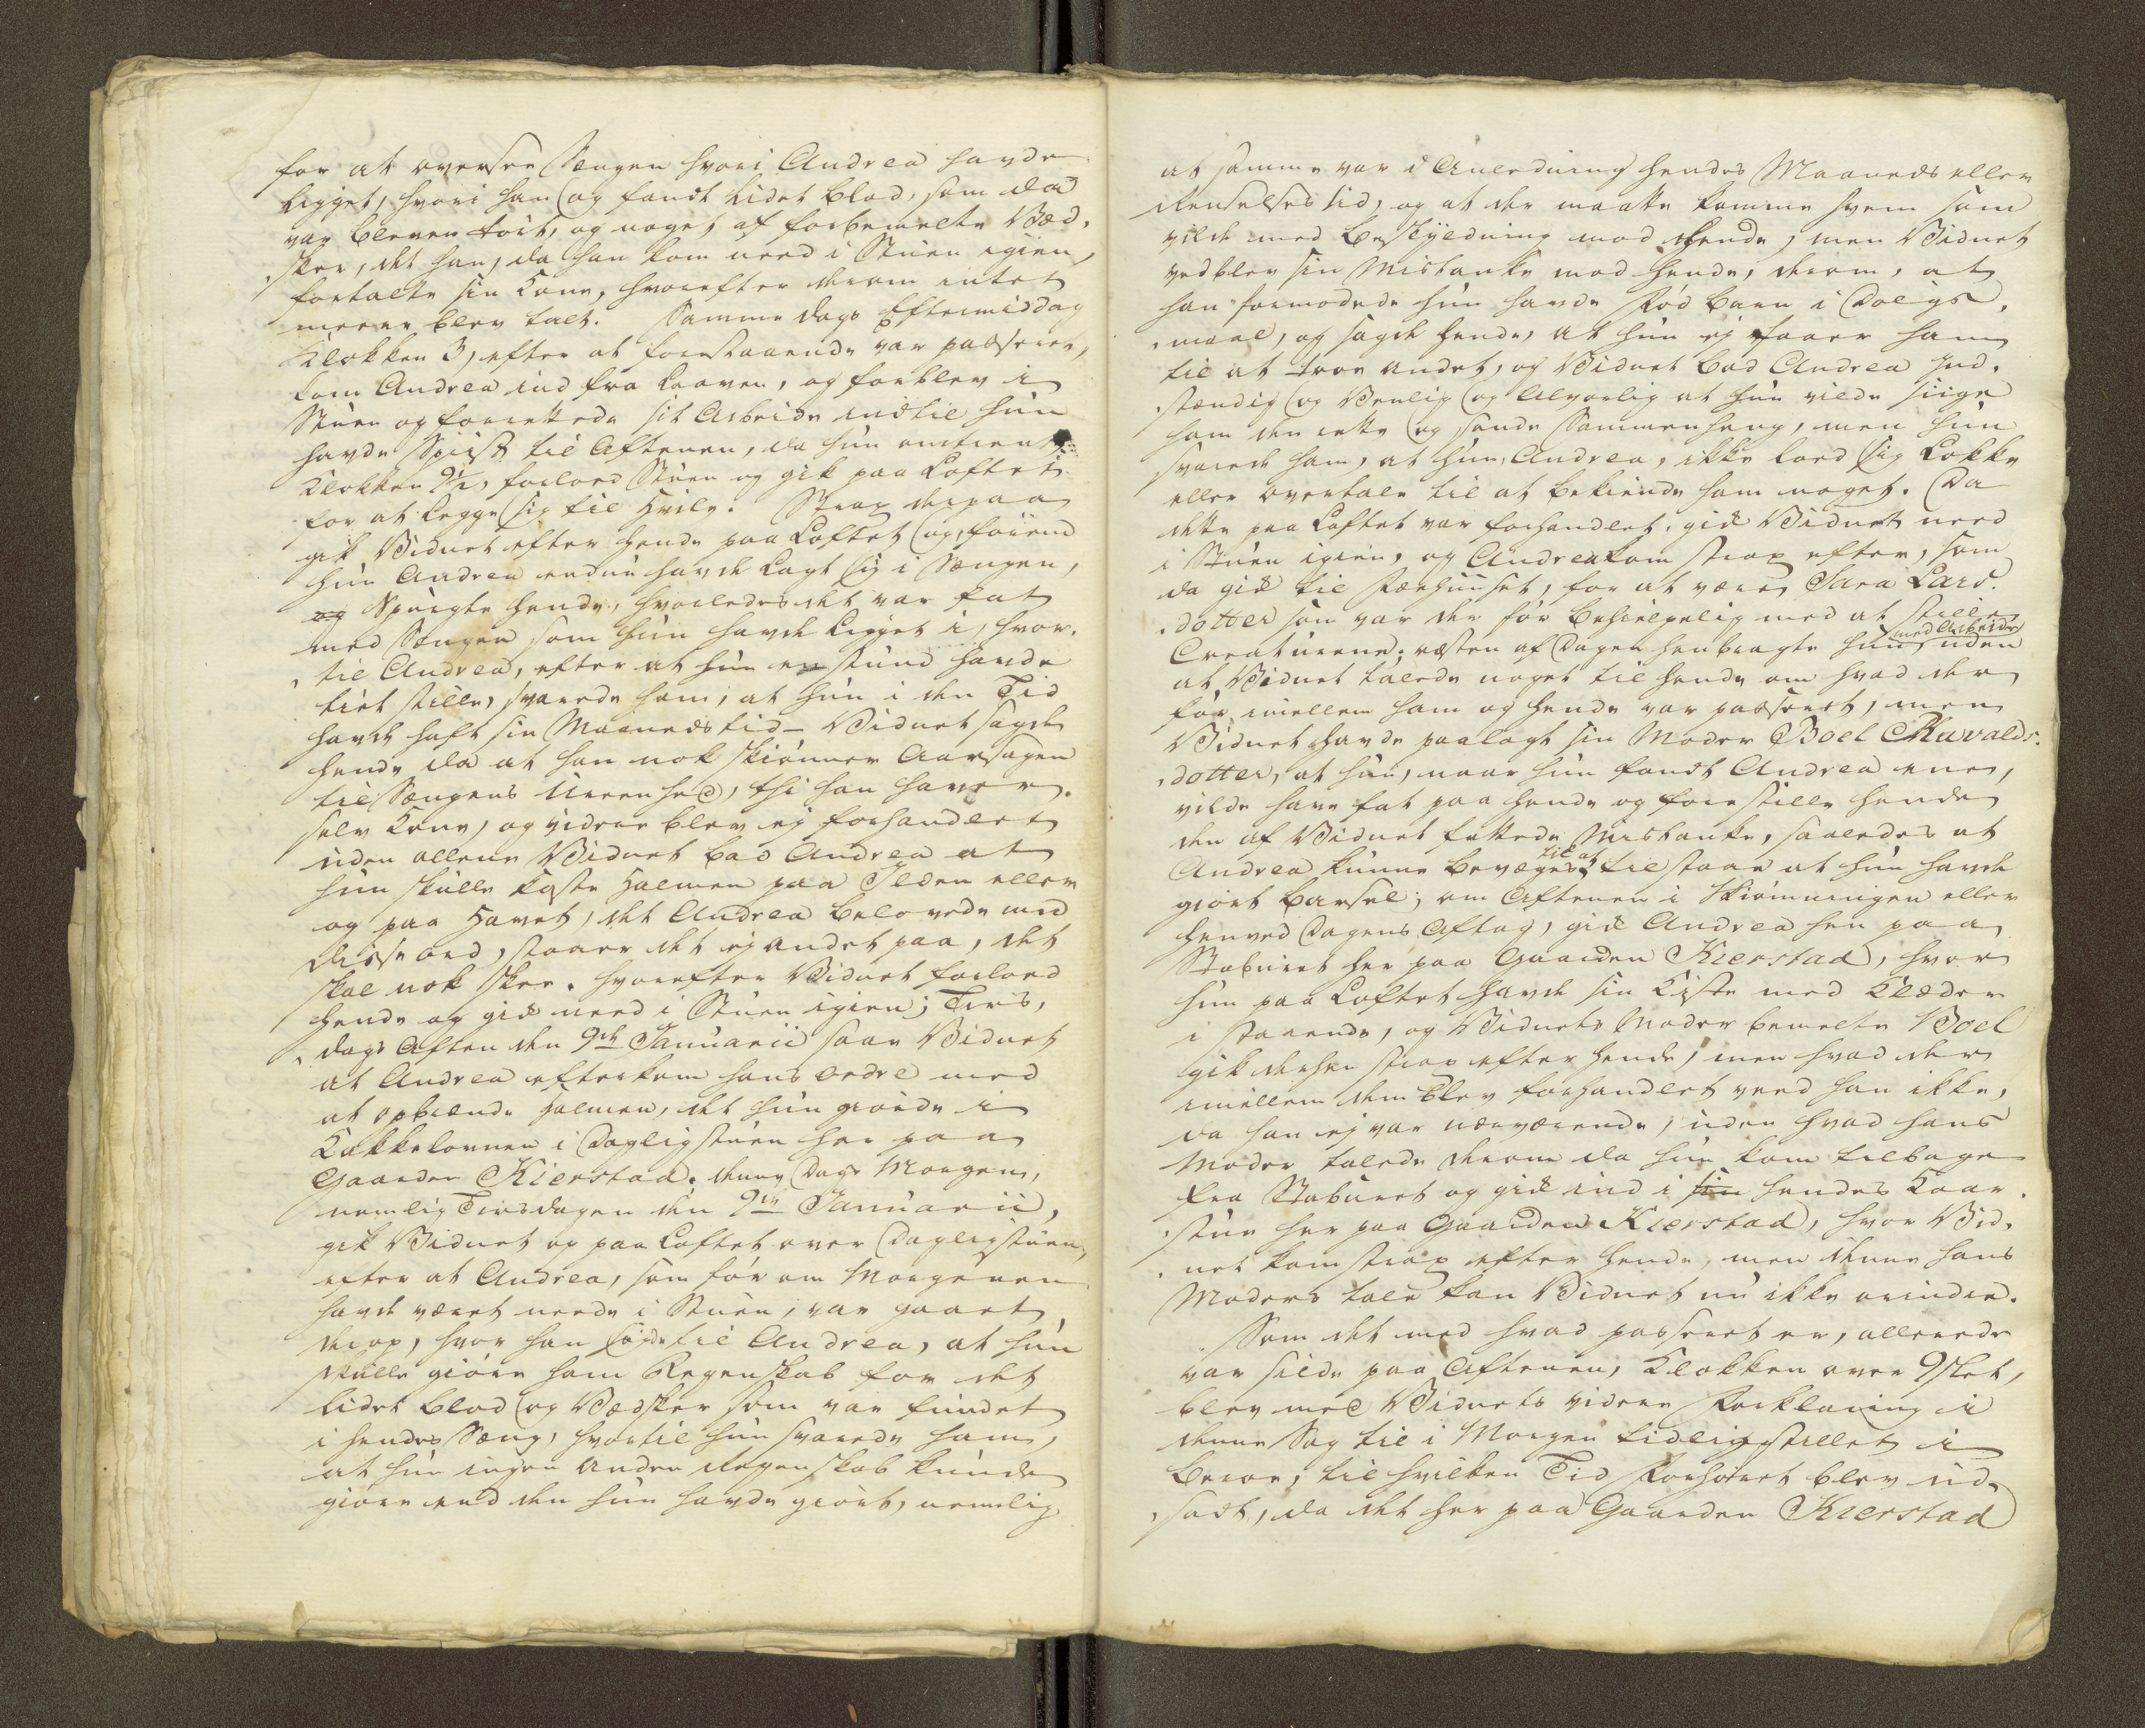 for at oversee Sængen hvori Andrea havde
Ligget, hvori han og fandt lidet blod, som da
var bleven tört, og noget af forbemelte Væd-
-sker, det han, da han kom need i Stuen igien,
fortalte sin Kone, hvorefter derom intet
meere blev talt. Samme dags Eftermiddag
Klokken 3, efter at forestaaende var passeret,
kom Andrea ind fra Laaven, og forblev i
Stuen og forrettede sit Arbeide indtil hun
havde Spiist til Aftenen, da hun omtrent
Klokken 9½, forlod Stuen og gik paa Loftet
for at legge sig til Hvile. Strax derpaa
gik Vidnet efter hende paa Loftet og, förend
hun Andrea endnu havde Lagt sig i Sængen,
og Spurgte hende, hvorledes det var fat
med Sængen som hun havde Ligget i, hvor-
-til Andrea, efter at hun en stund havde
tiet stille, svarede ham, at hun i den Tid
havde haft sin Maaneds tid – Vidnet sagde
hende da at han nok skiönner Aarsagen
til Sængens Ureenhed, thi han haver
selv Kone, og videre blev ej forhandlet
uden allene Vidnet bad Andrea at
hun skulle kaste Halmen paa Ilden eller
og paa Havet, det Andrea belovede med
disse ord, staaer det ej andet paa, det
skal nok skee. hvorefter Vidnet forlod
hende og gik need i Stuen igien; Tirs-
-dags Aften den 9de Januarii saae Vidnet
at Andrea efterkom hans ordre med
at opbrænde Halmen, det hun giorde i
Kakkelovnen i Dagligstuen her paa
Gaarden Kierstad. denne Dags Morgen,
nemlig Tirsdagen den 9de Januarii,
gik Vidnet op paa Loftet over Dagligstuen,
efter at Andrea, som för om Morgenen
havde været neede i Stuen, var gaaet
derop, hvor han sagde til Andrea, at hun
skulle giöre ham Regenskab for det
lidet blod og Vædsker som var fundet
i hendes Sæng, hvortil hun svarede ham,
at hun ingen anden Regenskab kunde
giöre end den hun havde giort, nemlig
at samme var i Anledning hendes Maaneds eller
Renselses tid, og at der maatte komme hvem som
vilde med beskyldning mod hende, men Vidnet
vedblev sin Mistanke mod hende, derom, at
han formodede hun havde fød barn i Dölgs-
-maal, og sagde hende, at hun ej faaer ham
til at troe andet, og Vidnet bad Andrea Ind-
-stændig og Venlig og Alvorlig at hun vilde siige
ham den rette og sande Sammenheng, men hun
svarede ham, at hun, Andrea, ikke lod sig Lokke
eller overtale til at bekiende ham noget. Da
dette paa Loftet var forhandlet, gik Vidnet need
i Stuen igien, og Andrea kom strax efter, som
da gik til Fæehuuset, for at være Sara Lars-
-dotter som var der för behielpelig med at stille
Creaturene; resten af Dagen henbragte hun med Arbeide uden
at Vidnet talede noget til hende om hvad der
för imellem ham og hende var passeret, men
Vidnet havde paalagt sin Moder Boel Ravalds-
-dotter, at hun, naar hun fandt Andrea ene,
vilde have fat paa hende og forestille hende
den af Vidnet fattede Mistanke, saaledes at
Andrea kunne bevæges til at tilstaae at hun havde
giört barsel; om Aftenen i Skiömningen eller
henved Dagens Aftag, gik Andrea hen paa
Staburet her paa Gaarden Kierstad, hvor
hun paa Loftet havde sin Kiste med Klæder
i staaende, og Vidnets Moder bemelte Boel
gik derhen strax efter hende, men hvad der
imellem dem blev forhandlet veed han ikke,
da han ej var nærværende, uden hvad hans
Moder talede derom da hun kom tilbage
fra Staburet og gik ind i sin hendes Kaar-
-stue her paa Gaarden Kierstad, hvor Vid-
-net kom strax efter hende, men denne hans
Moders tale kan Vidnet nu ikke erindre.
Som det med hvad passeret er, allerede
var silde paa Aftenen, Klokken over 9slet,
blev med Vidnets videre Forklaring i
denne Sag til i Morgen tidlig stillet i
beroe, til hvilken Tid Forhöret blev ud-
-sadt, da det her paa Gaarden Kierstad